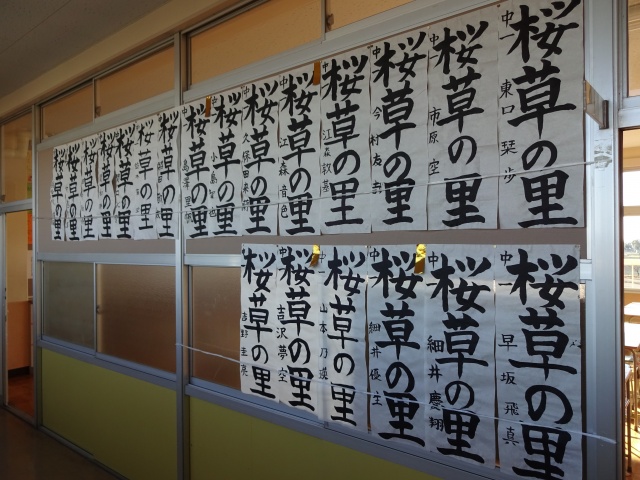 桜草の里
中一 東口 栞歩
桜草の里
中一 市原 空
桜草の里
中一 今村友
桜草の里
中一 江森
桜草の里
中一 江森音色
桜草の里
久保田来
桜草の里
小島
桜草の里
桜草の里
桜草の里
桜草の里
桜草の里
桜草の里
桜草の里
桜草の里
桜草の里
中一 早坂 飛真
桜草の里
中一 細井慶翔
桜草の里
中一 細井優
桜草の里
中一 山本乃瑛
桜草の里
中一 吉沢夢空
桜草の里
吉野圭亮